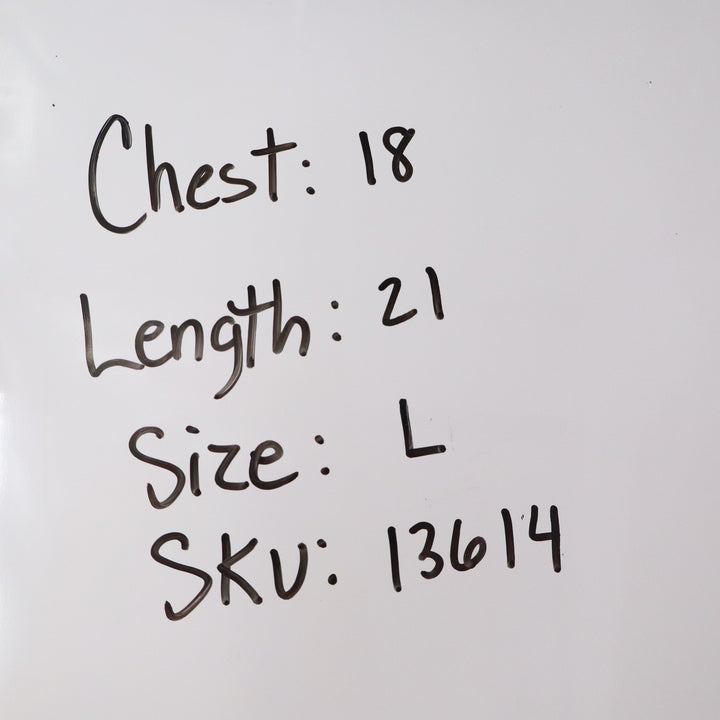 Chest: 18
Length: 21
Size: L
SKU: 13614